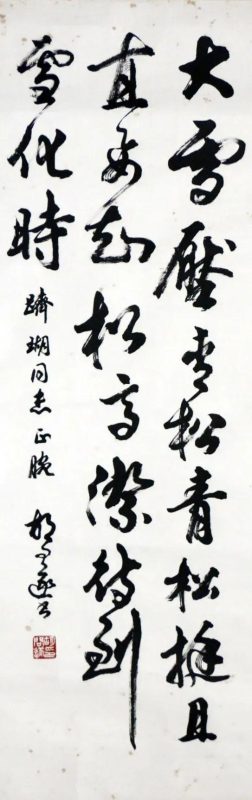 大雪壓青松青松挺且
直要知松高潔待到
雪化時
瑚同志正腕 胡問遂書